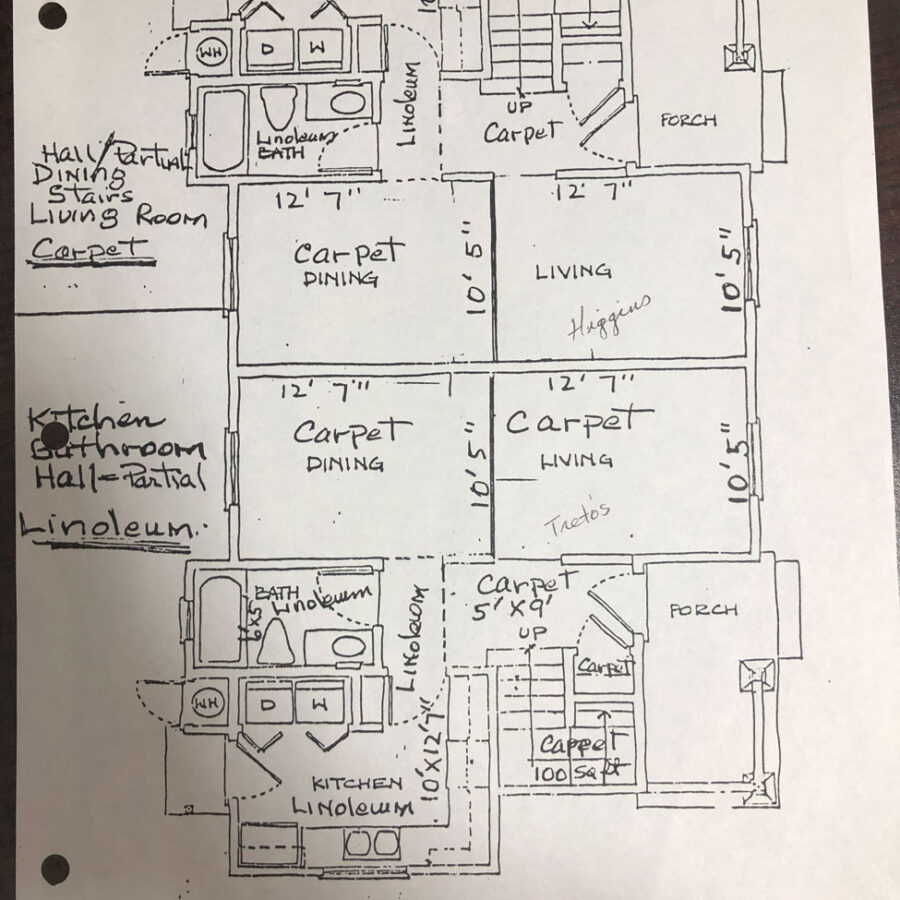 WH
D
W
Linoleum
UP
Carpet
PORCH
Linoleum
BATH
Hall/Partial
Dining
Stairs
Living Room
Carpet
12' 7"
12' 7"
Carpet
DINING
10' 5"
LIVING
10' 5"
Higgins
12' 7"
12' 7"
Carpet
DINING
10' 5"
Carpet
LIVING
10' 5"
Tretos
Kitchen
Bathroom
Hall=Partial
Linoleum.
BATH
Linoleum
Linoleum
Carpet
5'X9'
UP
PORCH
Carpet
WH
D
W
10'X12'7"
Carpet
100 Sq ft
KITCHEN
Linoleum